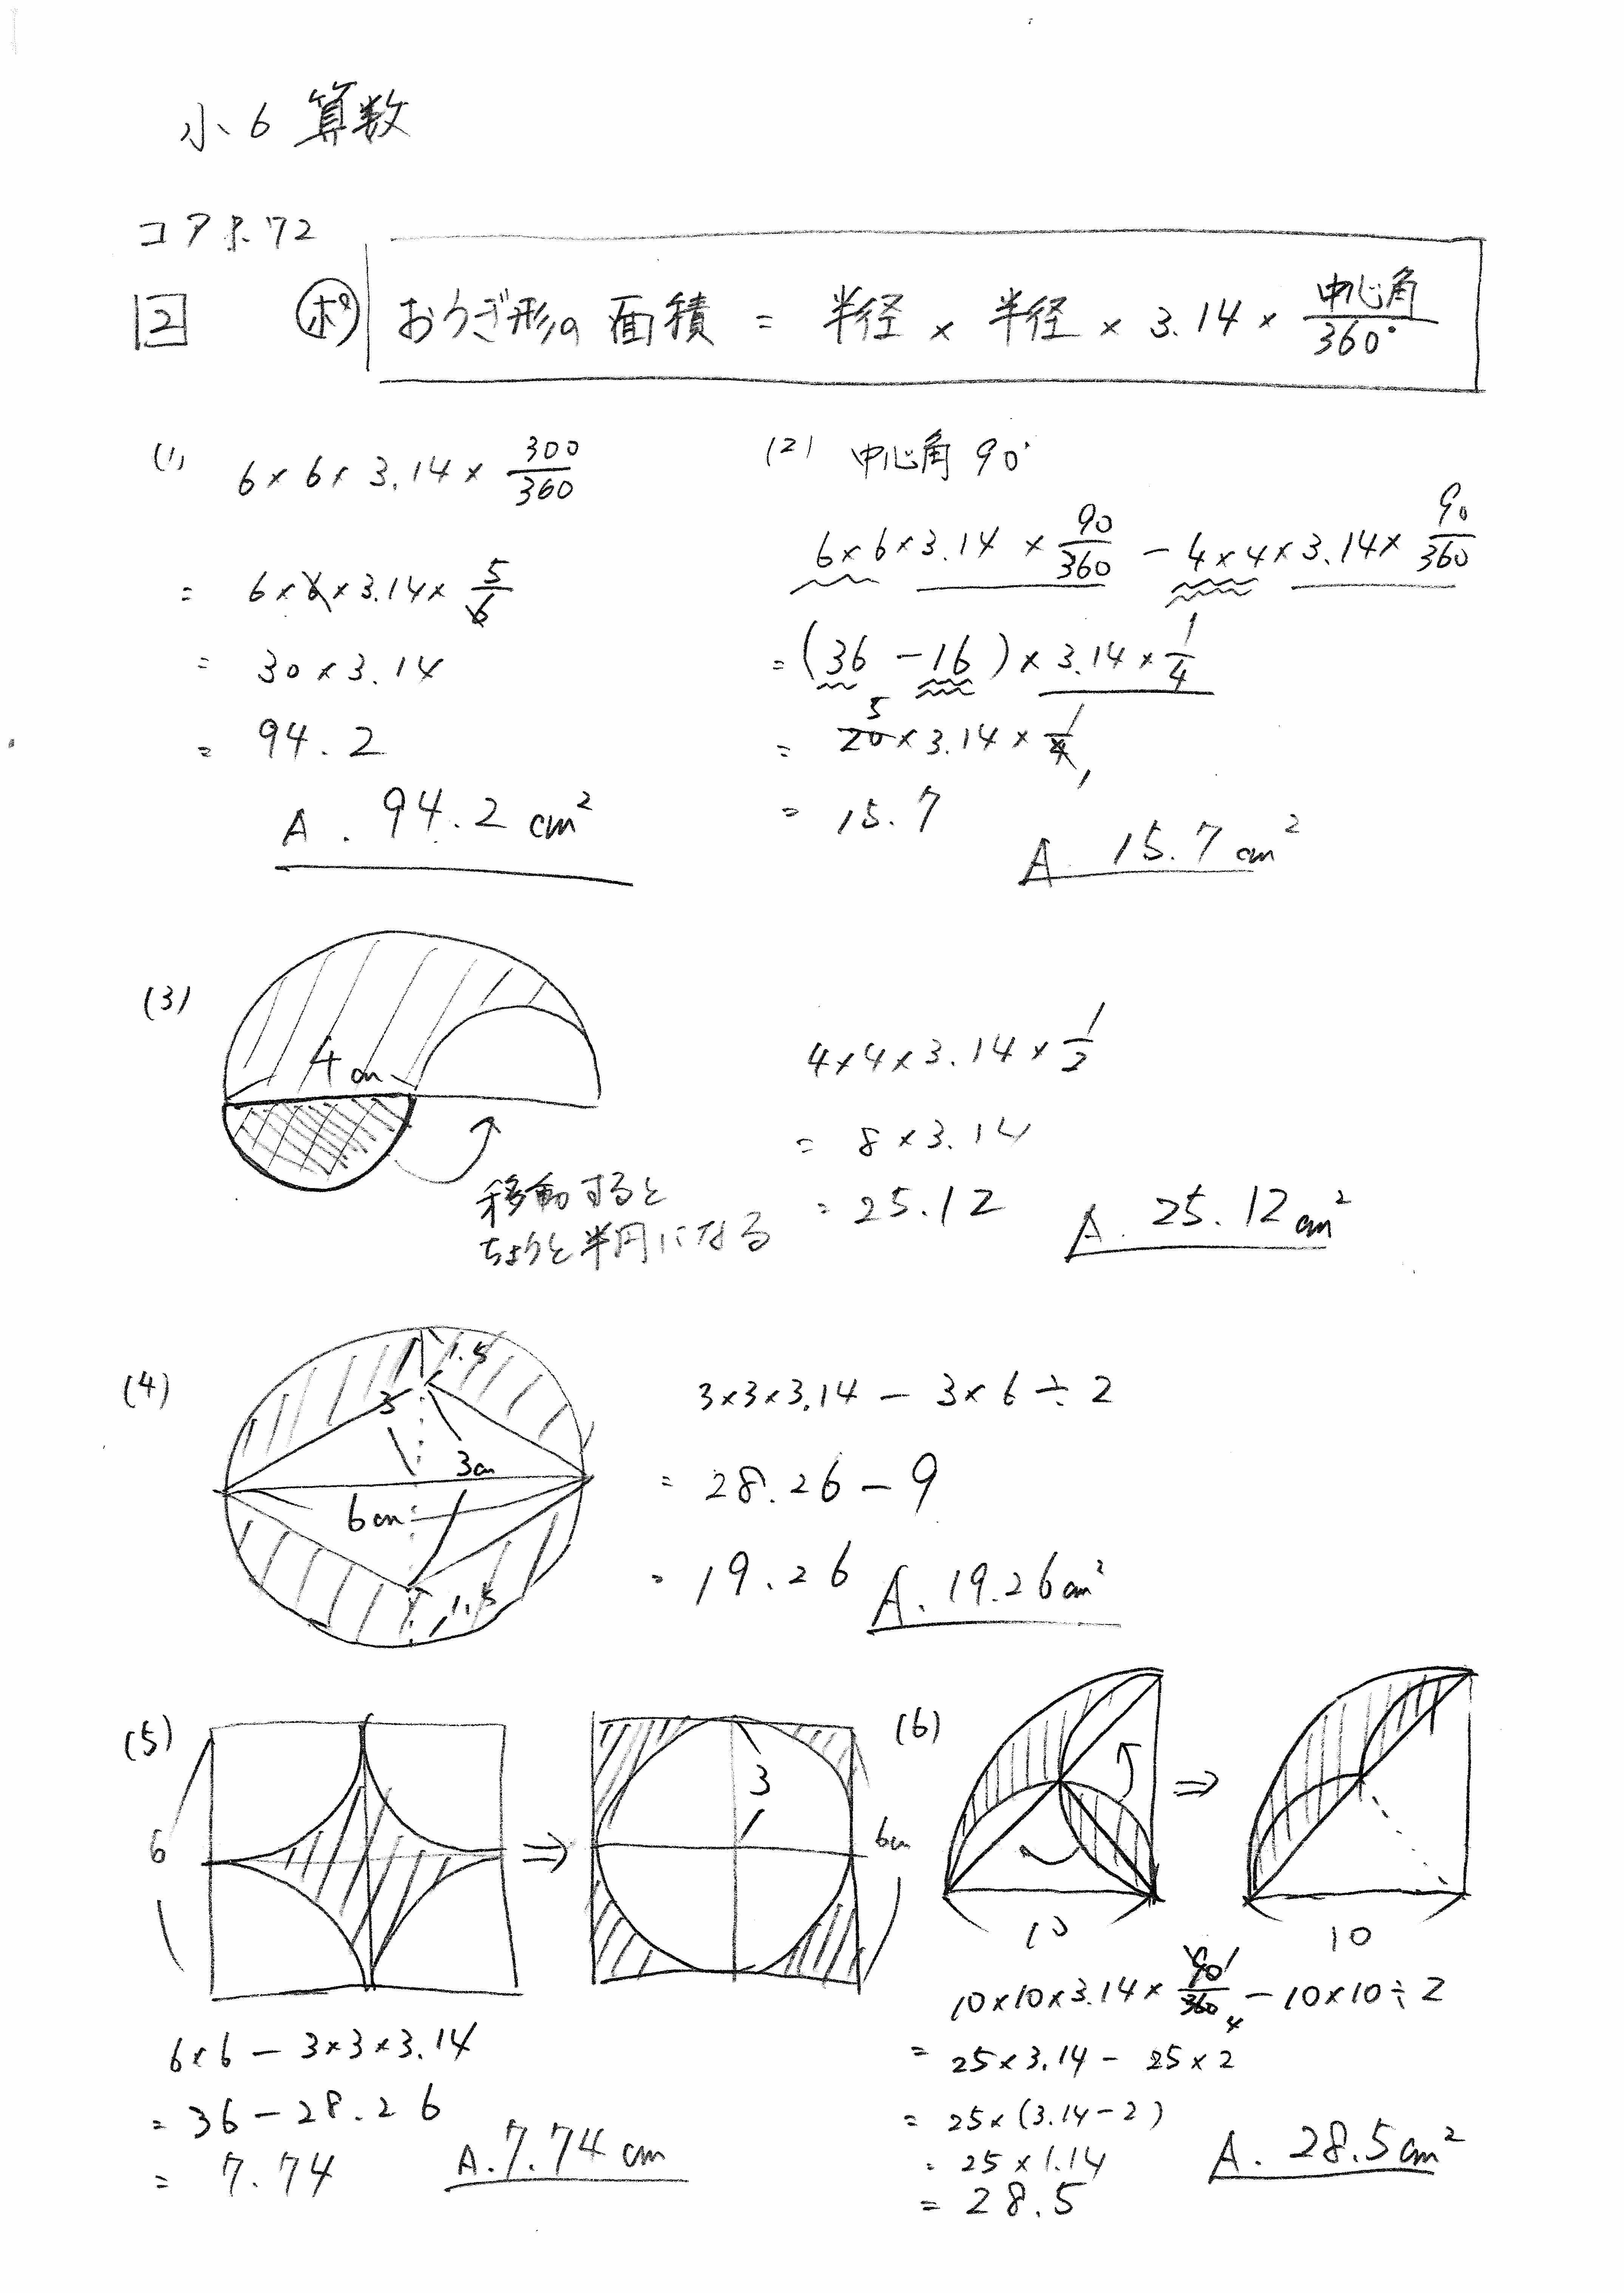 小6 算数
コア P.72
2 ポ おうぎ形の面積 = 半径 × 半径 × 3.14 × 中心角/360°
(1) 6×6×3.14×300/360
= 6×6×3.14×5/6
= 30×3.14
= 94.2
A. 94.2 cm²
(2) 中心角 90°
6×6×3.14×90/360 − 4×4×3.14×90/360
= (36 − 16) × 3.14 × 1/4
= 20×3.14×1/4
5
1
= 15.7
A. 15.7 cm²
(3)
4cm
移動すると
ちょうど半円になる
4×4×3.14×1/2
= 8×3.14
= 25.12
A. 25.12 cm²
(4)
1.5
3
3cm
6cm
1.5
3×3×3.14 − 3×6÷2
= 28.26 − 9
= 19.26
A. 19.26 cm²
(5)
6
⇒
3
6cm
6×6 − 3×3×3.14
= 36 − 28.26
= 7.74
A. 7.74 cm
(6)
⇒
10
10
10×10×3.14×90/360 − 10×10÷2
1
4
= 25×3.14 − 25×2
= 25×(3.14−2)
= 25×1.14
= 28.5
A. 28.5 cm²